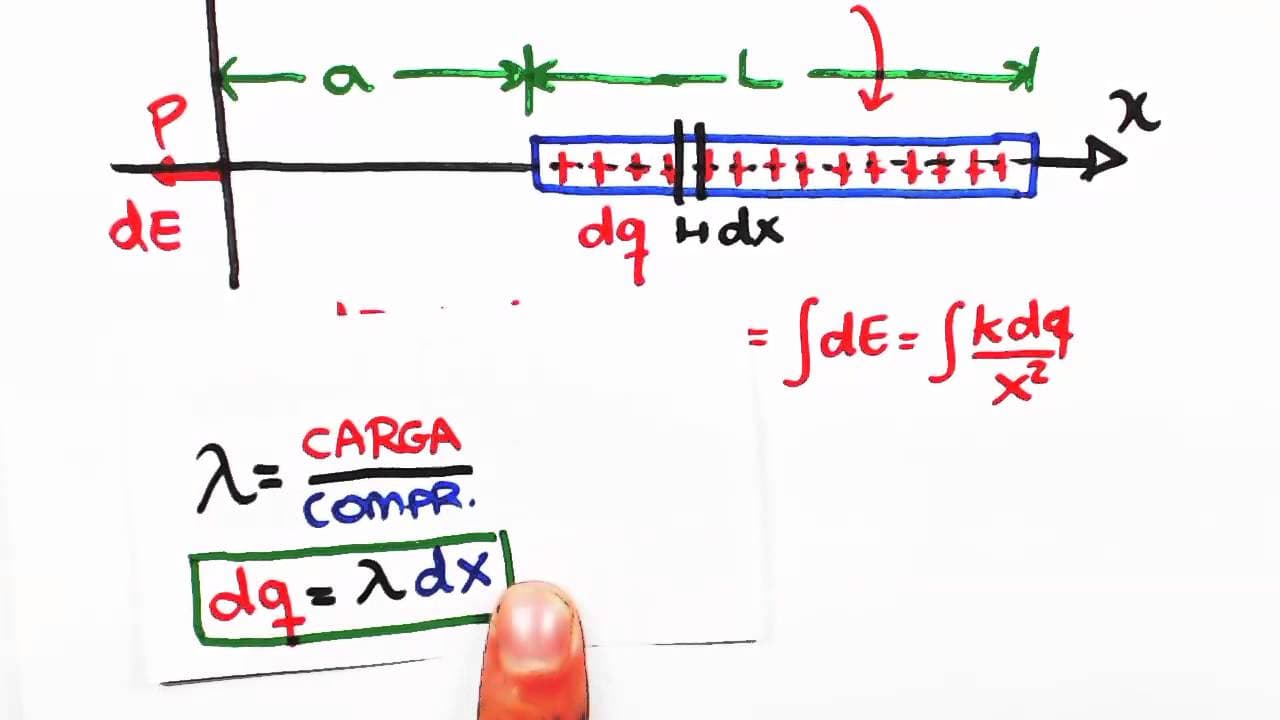 a L
P x
dE dq dx
= ∫dE = ∫ k dq / x²
λ = CARGA / COMPR.
dq = λ dx